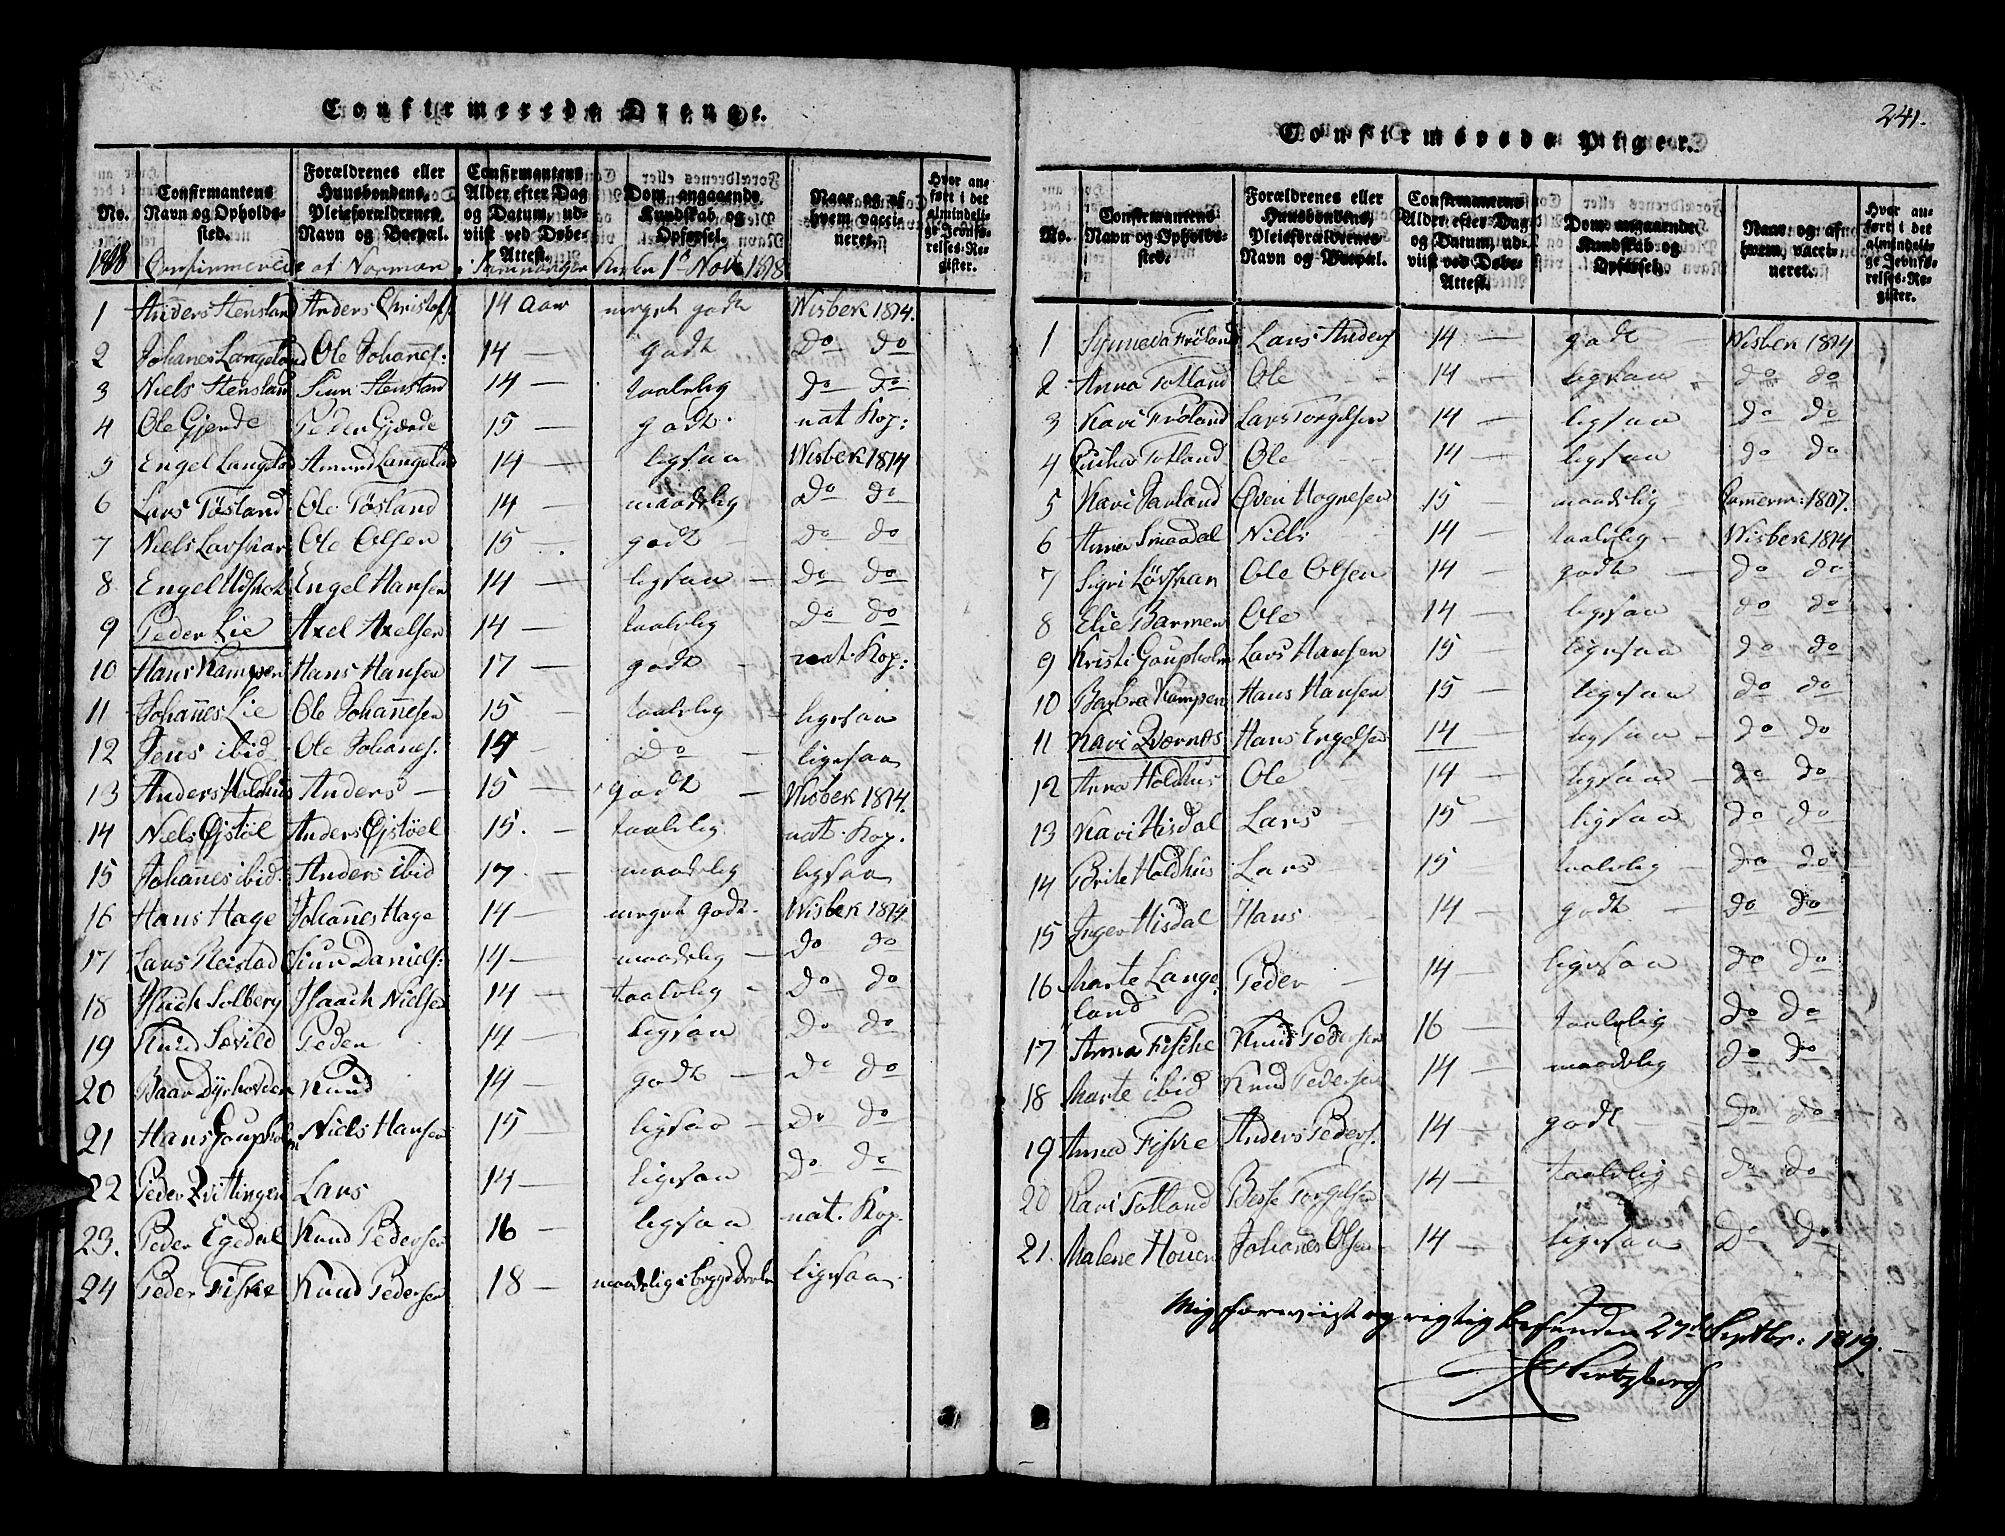 Confirmerede Drenge.
No. | Confirmantens Navn og Opholdssted. | Forældrenes eller Huusbondens, Pleieforældrenes Navn og Boepæl. | Confirmantens Alder efter Dag og Datum, udviist ved Døbe-Attest. | Dom angaaende Kundskab og Opførsel. | Naar og af hvem vaccineret. | Hvor anført i det almindelige Jevnførelses-Register.
1818 Confirmerede af Norman i Samnanger Kirke 1ste Novb 1818
1 Anders Stensland Anders Christoff 14 Aar meget godt Wisbek 1814.
2 Johanes Langeland Ole Johanes: 14 — godt Do Do
3 Niels Stensland Siur Stensland 14 — taalelig Do Do
4 Ole Gjerde Peder Gjerde 15 — godt nat Kop:
5 Engel Langeland Amund Langeland 14 — ligesaa Wisbek 1814
6 Lars Tøsland Ole Tøsland 14 — maadelig Do Do
7 Niels Løvskar Ole Olsen 15 — godt Do Do
8 Engel Engel Hansen 14 — ligesaa — Do Do
9 Peder Lie Axel Axelsen 14 — taalelig Do Do
10 Hans Kampen Hans Hansen 17 — godt — nat. Kop:
11 Johannes Lie Ole Johannesen 15 — taalelig — ligesaa
12 Jens ibid Ole Johanes. 14 — Do — ligesaa
13 Anders Holdhus Anders — 15 — godt — Wisbek 1814.
14 Niels Gjstøl Anders Gjstøel 15. — taalelig nat. Kop.
15 Johannes ibid. Anders ibid 17 — maadelig ligesaa
16 Hans Hage Johannes Hage 14 — meget godt. Wisbek 1814
17 Lars Reistad Siur Daniels: 14 — maadelig — Do Do
18 Haach Solberg Haach Nielsen 14 — taalelig — Do Do
19 Knud Sævild Peder 14 — ligesaa Do Do
20 Baar Dyrhovden Knud 14 — godt — Do Do
21 Hans Gaupholm Niels Hansen 15 — ligesaa — Do Do
22 Peder Qvitingen Lars 14 — ligesaa Do Do
23. Peder Egedal Knud Pedersen 16 — ligesaa nat. Kop.
24 Peder Fiske Knud Pedersen 18 — maadelig i begge Dele ligesaa
241.
Confirmerede Piger.
No. | Confirmantens Navn og Opholdssted. | Forældrenes eller Huusbondens, Pleieforældrenes Navn og Boepæl. | Confirmantens Alder efter Dag og Datum, udviist ved Døbe-Attest. | Dom angaaende Kundskab og Opførsel. | Naar og af hvem vaccineret. | Hvor anført i det almindelige Jevnførelses-Register.
1 Synneva Frøland Lars Anders 14 — godt Wisbek 1814
2 Anna Totland Ole 14 — ligesaa Do Do
3 Kari Frøland Lars Torgelsen 14 — ligesaa Do Do
4 Totland Ole 14 — ligesaa Do Do
5 Kari Øven Hognesen 15 — maadelig 1807.
6 Anna Smaadal Niels 14 — taalelig — Wisbek 1814
7 Sigri Løvskar Ole Olsen 14 — godt — Do Do
8 Elie Barmen Ole — 14 — ligesaa Do Do
9 Kristi Gaupholm Lars Hansen 15 — ligesaa Do Do
10 Barbra Kampen Hans Hansen 15 — ligesaa Do Do
11 Kari Qværnes Hans Engelsen 14 — ligesaa — Do Do
12 Anna Holdhus Ole 14 — ligesaa — Do Do
13 Kari Hisdal Lars — 15 — ligesaa Do Do
14 Brite Holdhus Lars 15 — taalelig — Do Do
15 Inger Hisdal Hans 14 — godt — Do Do
16 Marte Lange- Peder — 14 — ligesaa Do Do
land
17 Anna Fiske Knud Pedersen 16 — taalelig Do Do
18 Marte ibid Knud Pedersen 14 — maadelig Do Do
19 Anna Fiske Anders Peders. 14 — godt — Do Do
20 Kari Totland Besse Torgelsen 14 — taalelig Do Do
21. Malene Houen Johanes Olsen 14 — ligesaa Do Do
Mig foreviist og rigtig befunden 27de Septbr: 1819.
Hertzberg